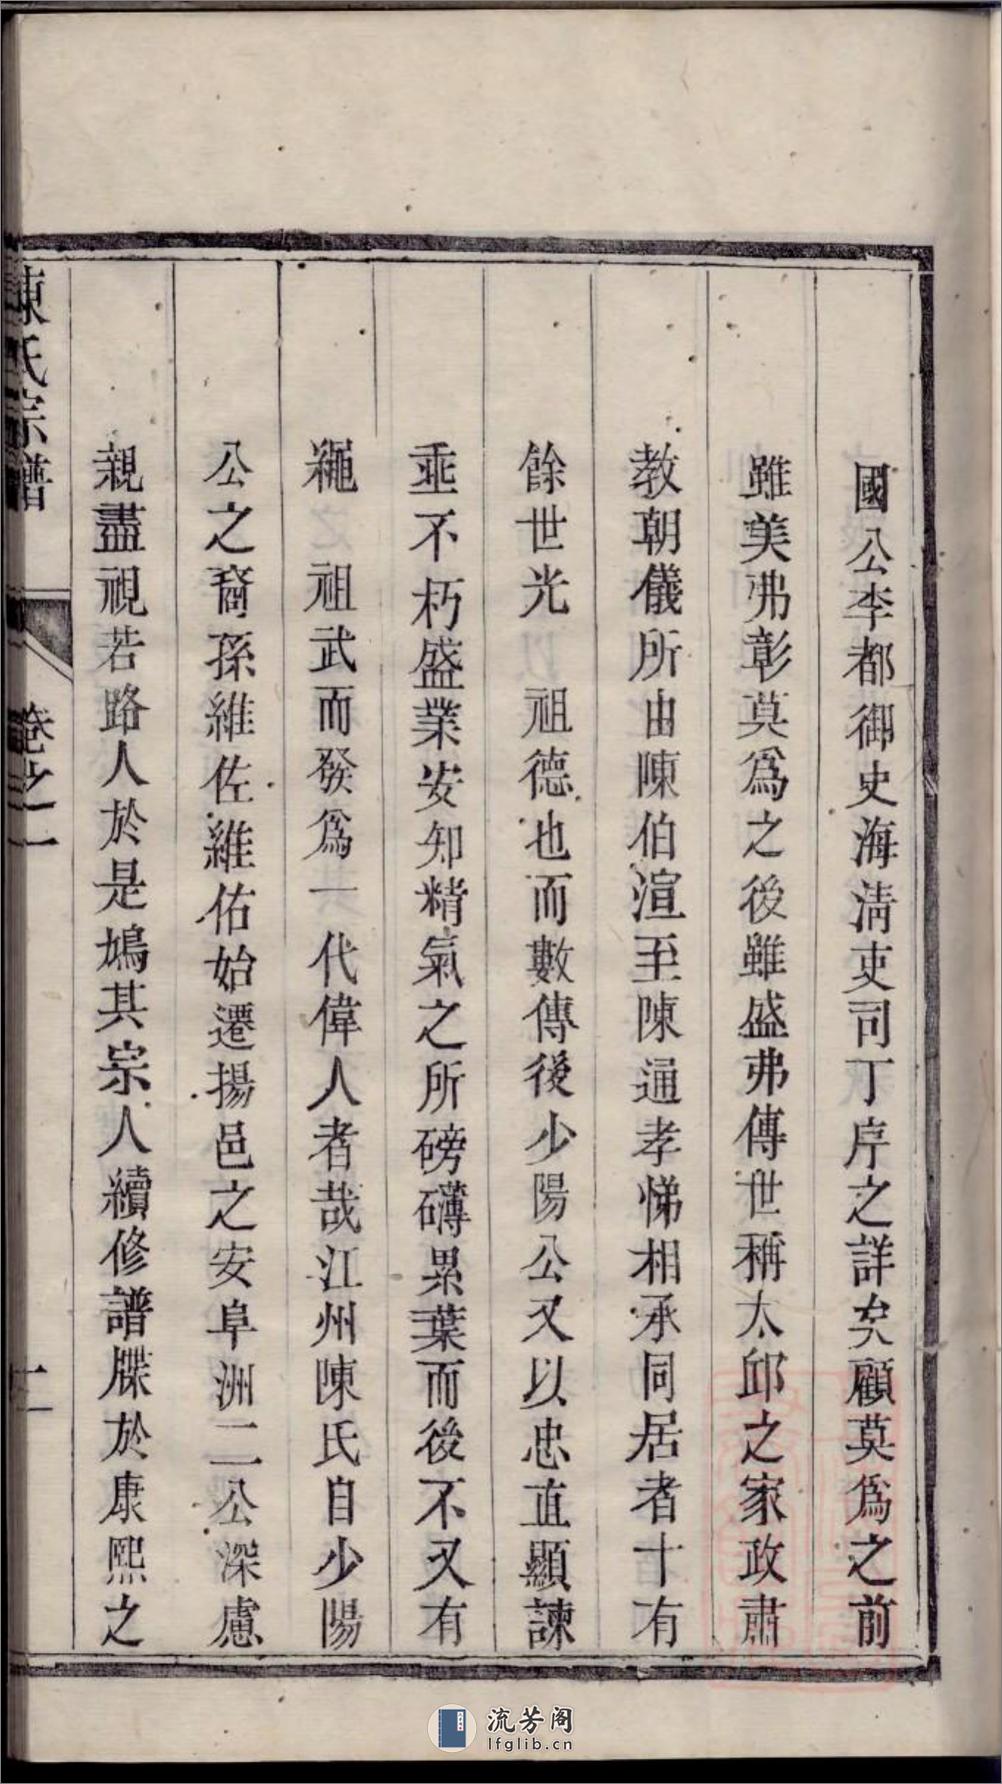 國公李都御史海淸吏司丁序之詳矣顧莫爲之前
雖美弗彰莫爲之後雖盛弗傳世稱太邱之家政肅
教朝儀所由陳伯渲至陳通孝悌相承同居者十有
餘世光　祖德也而數傳後少陽公又以忠直顯諫
垂不朽盛業安知精氣之所磅礴累葉而後不又有
繩　祖武而發爲一代偉人者哉江州陳氏自少陽
公之裔孫維佐維佑始遷揚邑之安阜洲二公深慮
親盡視若路人於是鳩其宗人續修譜牒於康熙之
陳氏宗譜　卷之一　二
流芳阁
lfglib.cn